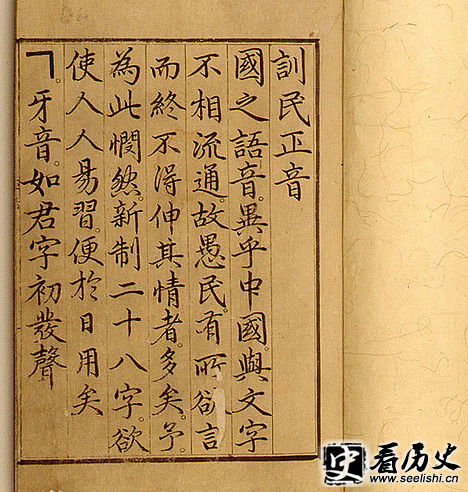 訓民正音
國之語音。異乎中國。與文字
不相流通。故愚民。有所欲言
而終不得伸其情者。多矣。予。
為此憫然。新制二十八字。欲
使人人易習。便於日用矣
ㄱ。牙音。如君字初發聲
史 看历史
www.seelishi.cn